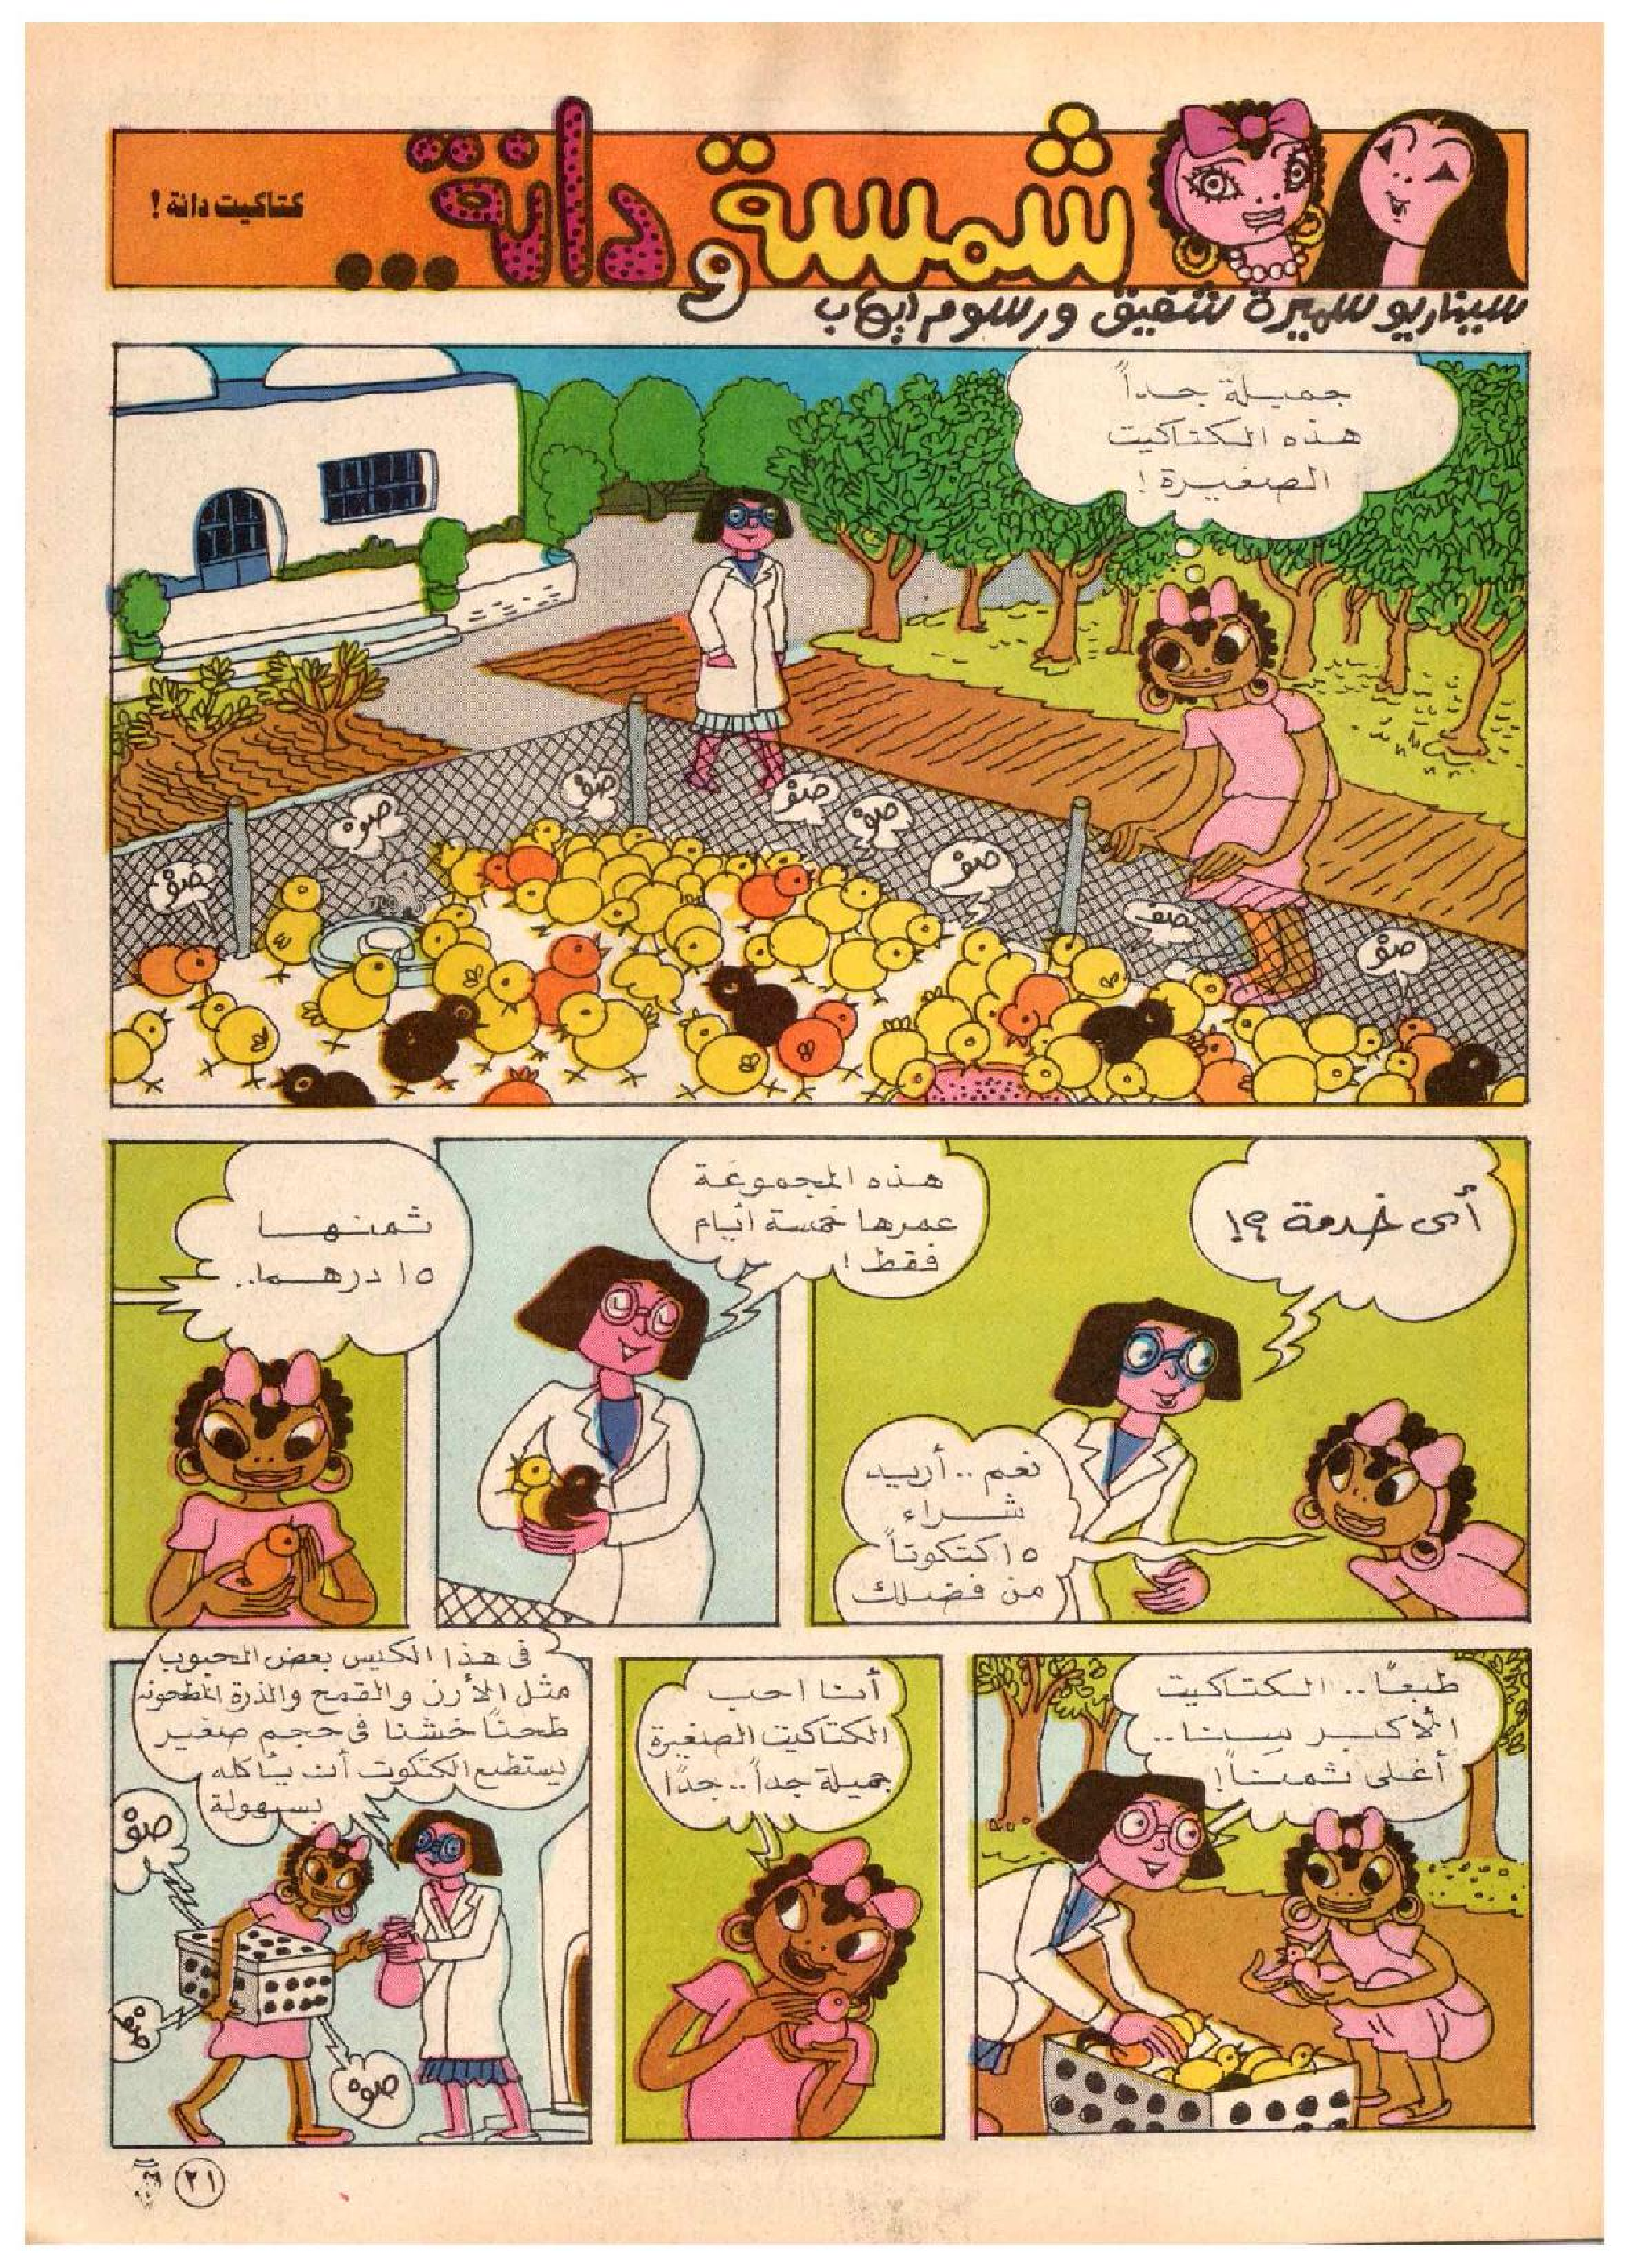 شمسة ودانة...
كتاكيت دانة !
سيناريو سميرة شفيق ورسوم ايهاب
جميلة جداً
هذه الكتاكيت
الصغيرة !
صو
صو
صو
صو
صو
صو
صو
صو
أى خدمة ؟!
نعم .. أريد
شراء
١٥ كتكوتاً
من فضلك
هذه المجموعة
عمرها خمسة أيام
فقط !
ثمنها
١٥ درهما ..
طبعًا .. الكتاكيت
الأكبر سنا ..
أغلى ثمناً !
أنا احب
الكتاكيت الصغيرة
جميلة جداً .. جدًا
فى هذا الكيس بعض الحبوب
مثل الأرز والقمح والذرة المطحونه
طحناً خشنا فى حجم صغير
يستطيع الكتكوت أن يأكله
بسهولة
صو
صو
صو
٢١